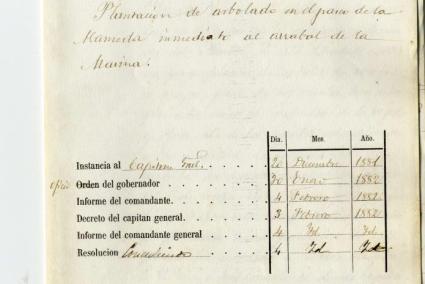 Plantacion de arbolado en el paseo de la
Alameda inmediato al arrabal de la
Marina.
Dia. Mes. Año.
Instancia al Capitan Gral. 20 Diciembre 1881
oficio Orden del gobernador 30 Enero 1882
Informe del comandante. 4 Febrero 1882
Decreto del capitan general. 3 Febrero 1882
Informe del comandante general 4 Id Id
Resolucion 4 Id Id